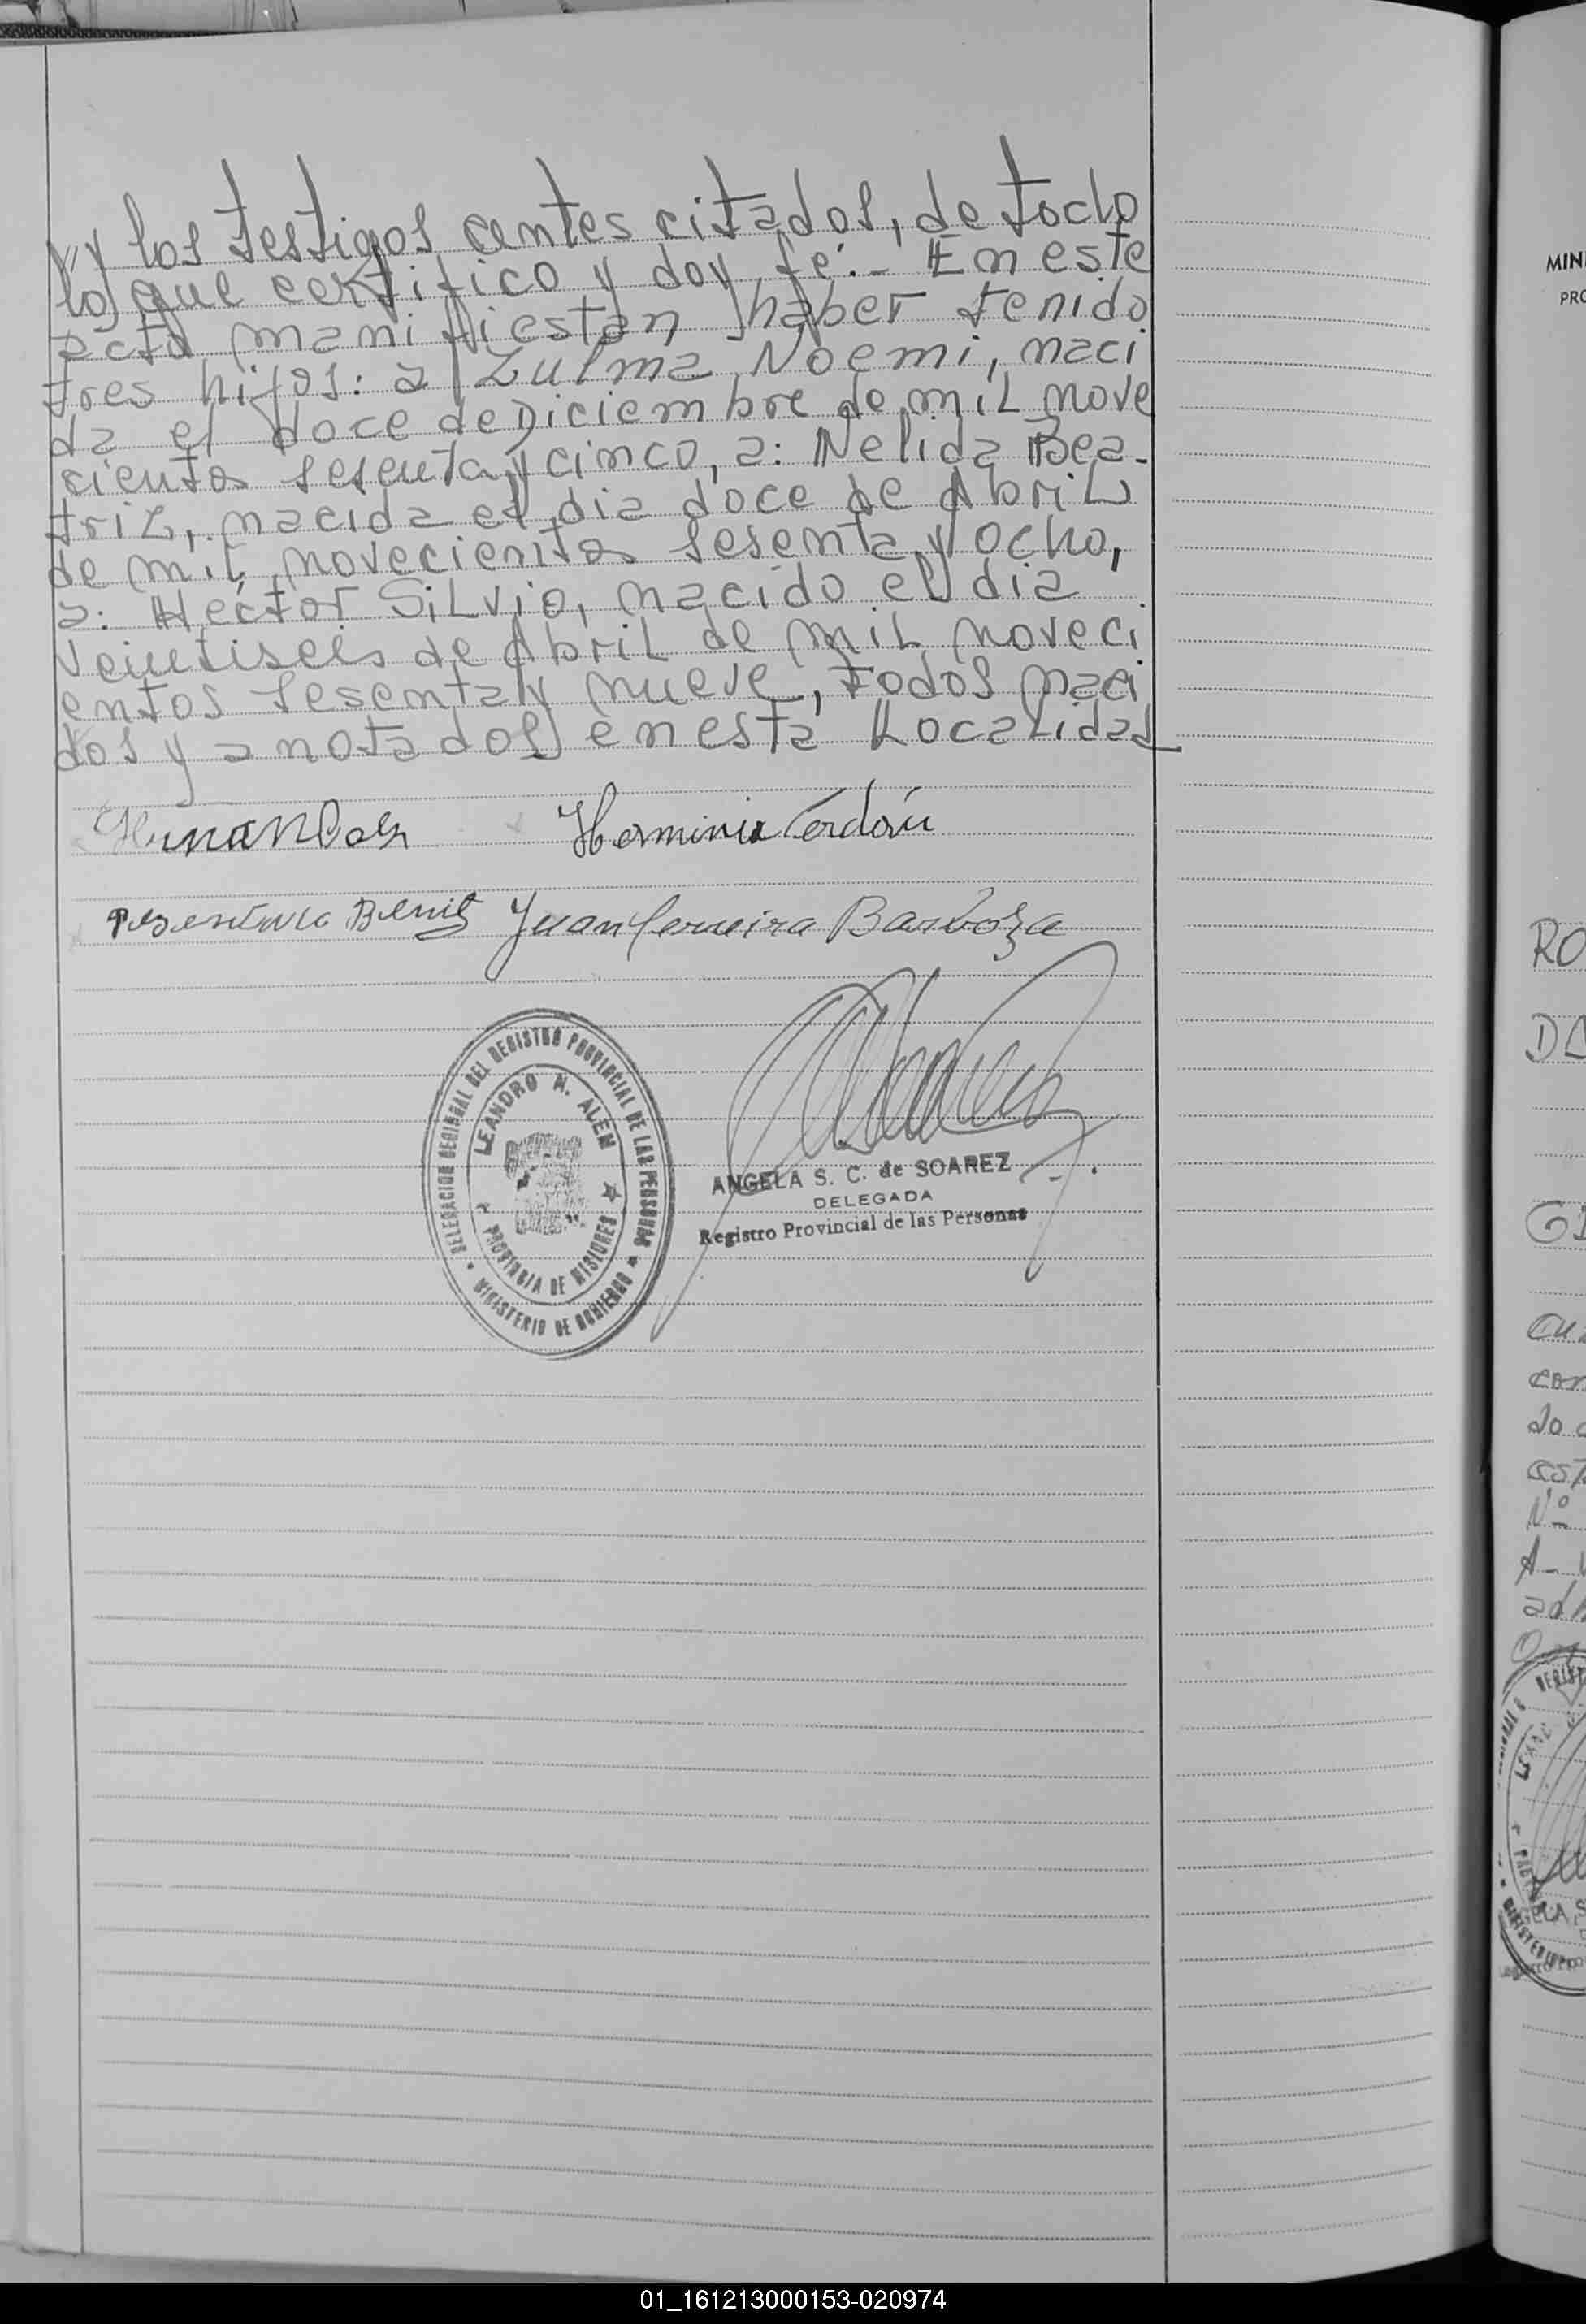 y los testigos antes citados, de todo
lo que certifico y doy fé.- En este
acto manifiestan haber tenido
tres hijos: a Zulma Noemi, naci
da el doce de Diciembre de mil nove
cientos sesenta y cinco, a: Nelida Bea-
triz, nacida el dia doce de Abril
de mil novecientos sesenta y ocho,
a: Hector Silvio, nacido el dia
veintiseis de Abril de mil noveci
entos sesenta y nueve, todos naci
dos y anotados en esta Localidad
Herminia Cordón
Juan Ferreira Barboza
DELEGACION REGIONAL DEL REGISTRO PROVINCIAL DE LAS PERSONAS
LEANDRO N. ALEM
PROVINCIA DE MISIONES
MINISTERIO DE GOBIERNO
ANGELA S. C. de SOAREZ
DELEGADA
Registro Provincial de las Personas
MIN
PRO
RO
DA
con
do
Nº
A-
01_161213000153-020974